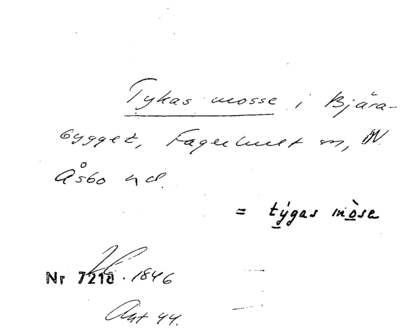 Tykas mosse i Bjära-
bygget, Fagerhult sn, N.
Åsbo hd.
= týgas mòse
Nr 7218 . 1846
Ant 44.